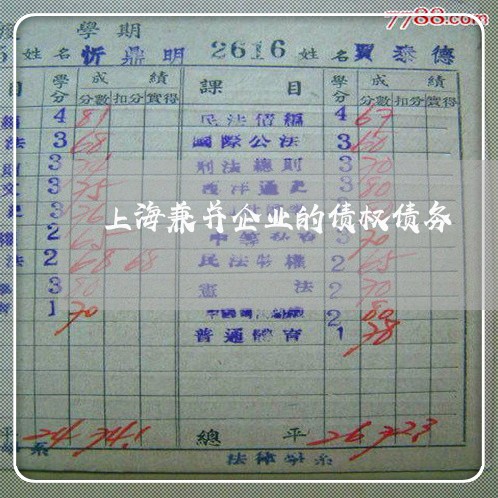 7788.com
學期
姓名 忻鼎明 2616 姓名 賈泰德
目 學分 成績 課目 學分 成績
分數 扣分 實得 分數 扣分 實得
4 81 民法債編 4 67
法 3 68 國際公法 3 60
3 刑法總則 3 70
3 75 西洋通史 3 80
3 76 3
上海兼并企业的债权债务
2 65 3 70
法 2 68 68 民法物權 2 65
3 80 憲法 2 70
1 70 2 80
普通體育 1 78
平 24 74.1 總平 26 72.3
系 法律學系